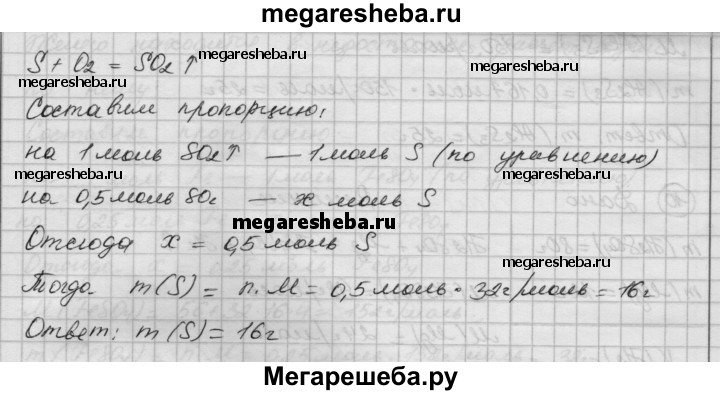 megaresheba.ru
S + O₂ = SO₂ ↑ megaresheba.ru megaresheba.ru
megaresheba.ru
Составим пропорцию:
на 1 моль SO₂↑ — 1 моль S (по уравнению)
megaresheba.ru megaresheba.ru
на 0,5 моль SO₂ — x моль S
megaresheba.ru
Отсюда x = 0,5 моль S
megaresheba.ru
Тогда m(S) = n·M = 0,5 моль · 32 г/моль = 16 г
Ответ: m(S) = 16 г
megaresheba.ru megaresheba.ru
Мегарешеба.ру